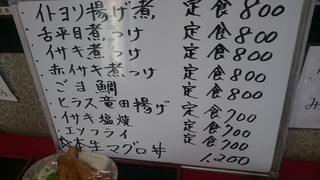 イトヨリ揚げ煮 定食800
・舌平目煮つけ 定食800
・イサキ煮つけ 定食800
・赤イサキ煮つけ 定食800
・ごま鯛 定食800
・ヒラス竜田揚げ 定食700
・イサキ塩焼 定食700
・エソフライ 定食700
本生マグロ丼 1,200
み